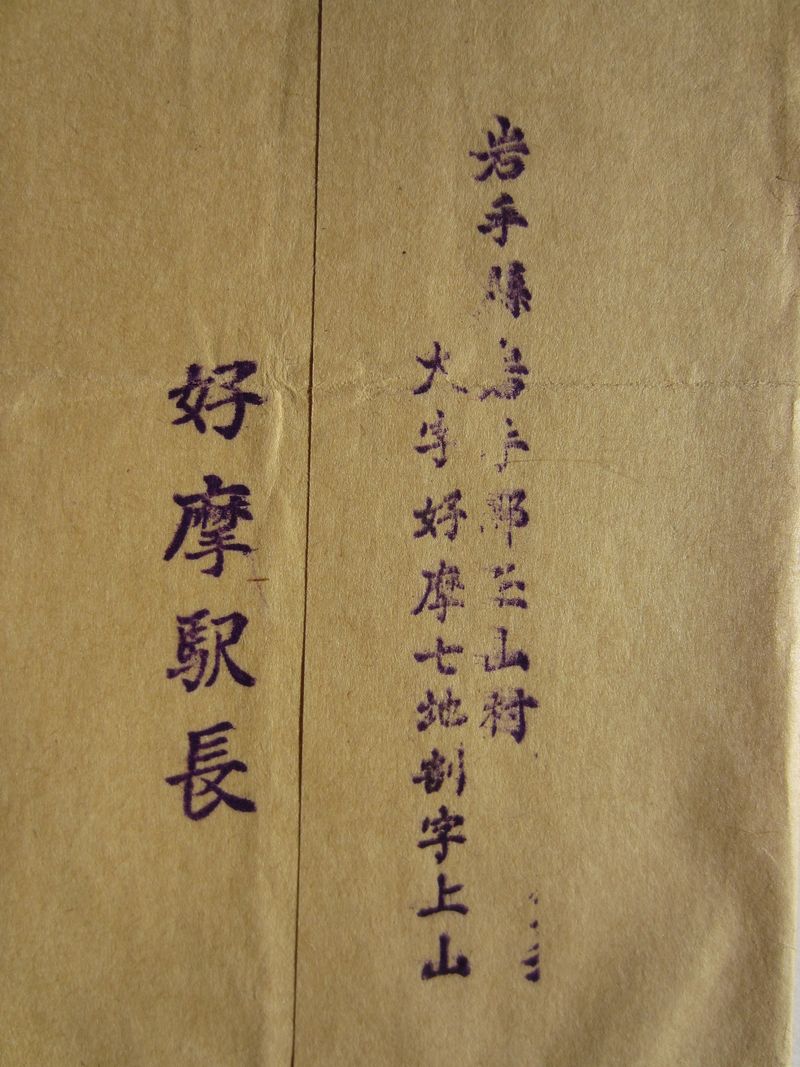 岩手縣岩手郡玉山村
大字好摩七地割字上山
好摩駅長